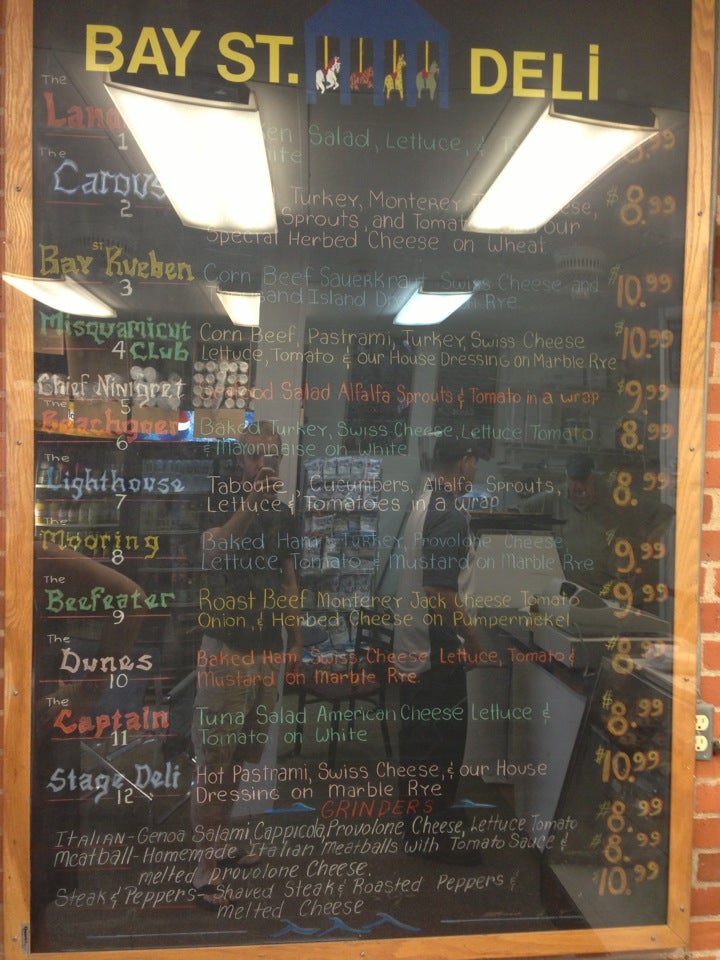 BAY ST. DELi
The
1
Salad, Lettuce, &
The
2
Turkey, Monterey
Sprouts, and
Special Herbed Cheese on Wheat
$8.99
Bay St Rueben
3
Corn Beef Sauerkraut Swiss Cheese and
Island on Rye
$10.99
Misquamicut
4 Club
Corn Beef, Pastrami, Turkey, Swiss Cheese
Lettuce, Tomato & our House Dressing on Marble Rye
$10.99
Chief Ninigret
5
Salad Alfalfa Sprouts & Tomato in a wrap
$9.99
The
Beachgoer
6
Baked Turkey, Swiss Cheese, Lettuce Tomato
& Mayonnaise on White
8.99
The
Lighthouse
7
Taboule, Cucumbers, Alfalfa Sprouts,
Lettuce & Tomatoes in a wrap
$8.99
The
Mooring
8
Baked Ham, Turkey, Provolone Cheese
Lettuce, Tomato & Mustard on Marble Rye
$9.99
The
Beefeater
9
Roast Beef Monterey Jack Cheese Tomato
Onion, & Herbed Cheese on Pumpernickel
$9.99
The
Dunes
10
Baked Ham, Swiss Cheese Lettuce, Tomato &
Mustard on Marble Rye
$8.99
The
Captain
11
Tuna Salad American Cheese Lettuce &
Tomato on White
$8.99
Stage Deli
12
Hot Pastrami, Swiss Cheese, & our House
Dressing on Marble Rye
$10.99
GRINDERS
Italian - Genoa Salami, Cappicola, Provolone Cheese, Lettuce Tomato
$8.99
Meatball - Homemade Italian Meatballs with Tomato Sauce &
melted provolone Cheese.
$8.99
Steak & Peppers - Shaved Steak & Roasted Peppers &
melted Cheese
$10.99